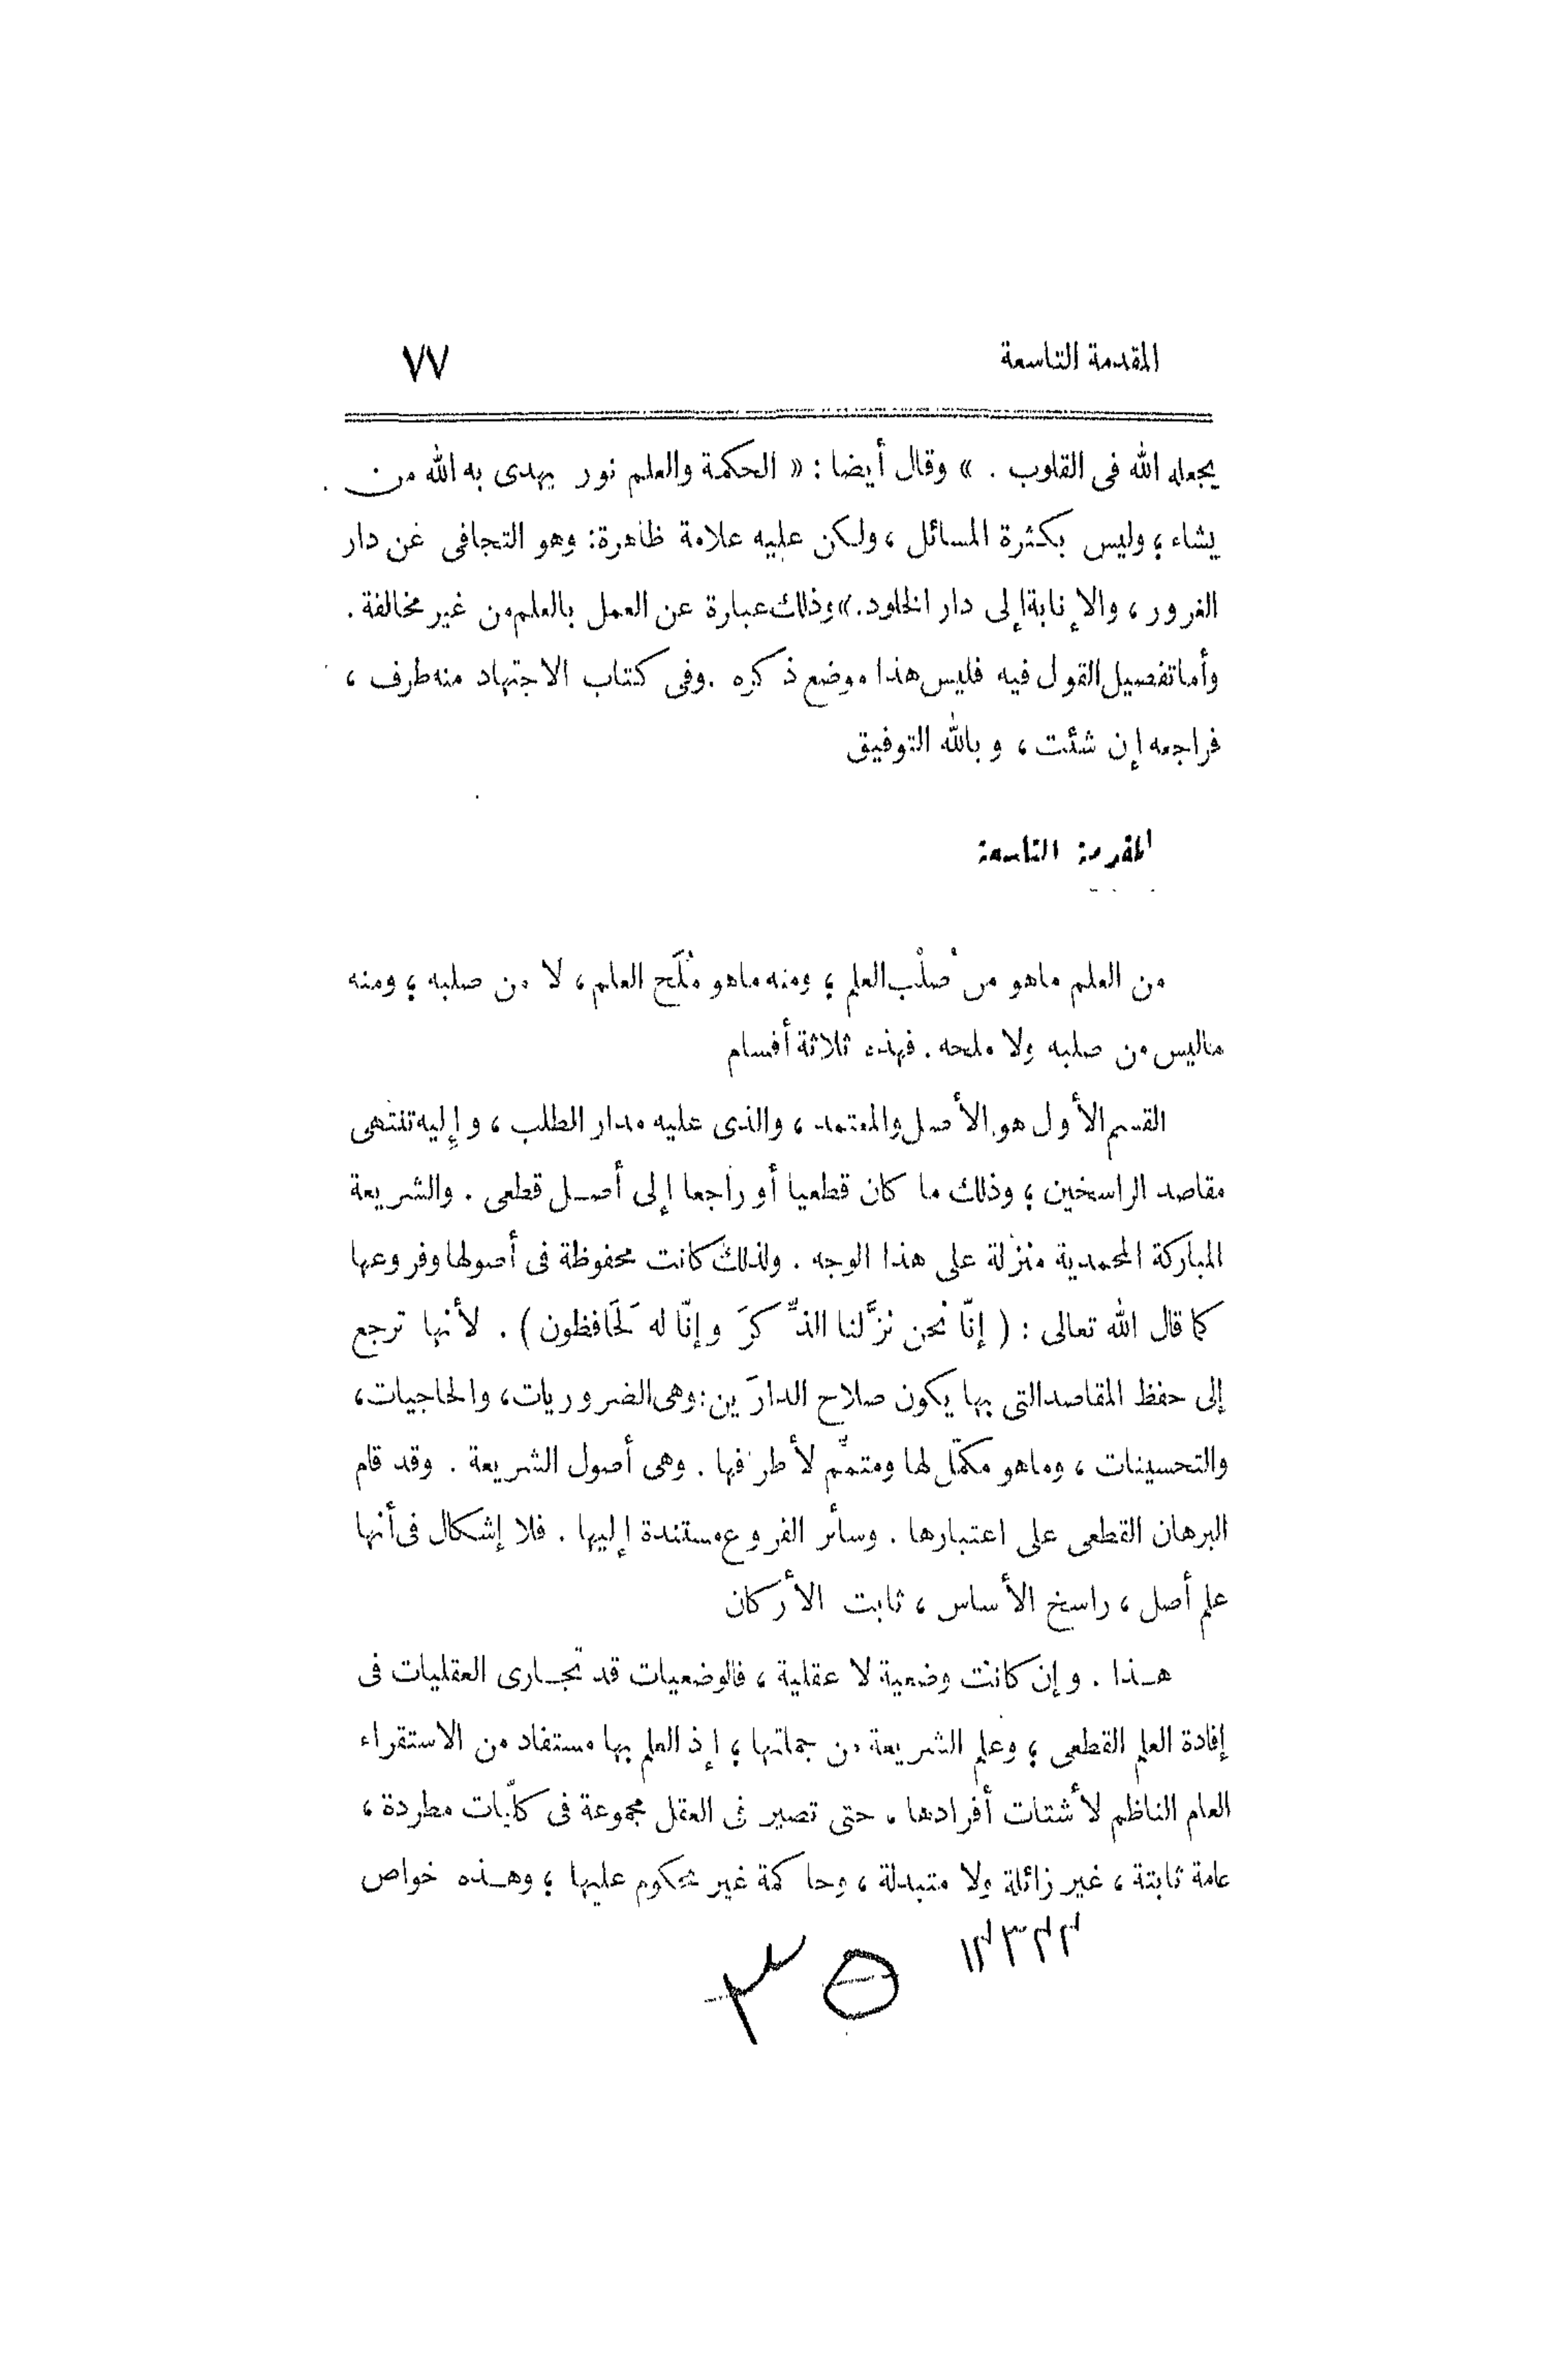 المقدمة التاسعة ٧٧
يجعله الله فى القلوب . » وقال أيضا : « الحكمة والعلم نور يهدى به الله من
يشاء ؛ وليس بكثرة المسائل ، ولكن عليه علامة ظاهرة: وهو التجافى عن دار
الغرور ، والإنابة إلى دار الخلود.» وذلك عبارة عن العمل بالعلم من غير مخالفة .
وأما تفصيل القول فيه فليس هذا موضع ذكره . وفى كتاب الاجتهاد منه طرف ،
فراجعه إن شئت ، وبالله التوفيق
المقدمة التاسعة
من العلم ماهو من صُلْب العلم ؛ ومنه ماهو مُلَح العلم ، لا من صلبه ؛ ومنه
ماليس من صلبه ولا ملحه . فهذه ثلاثة أقسام
القسم الأول هو الأصل والمعتمد ، والذى عليه مدار الطلب ، وإليه تنتهى
مقاصد الراسخين ؛ وذلك ما كان قطعيا أو راجعا إلى أصل قطعى . والشريعة
المباركة المحمدية منزلة على هذا الوجه . ولذلك كانت محفوظة فى أصولها وفروعها
كما قال الله تعالى : ( إنّا نحن نزَّلنا الذِّكرَ وإنّا له لَحَافظون ) . لأنها ترجع
إلى حفظ المقاصد التى بها يكون صلاح الدارَين: وهى الضروريات، والحاجيات،
والتحسينات ، وماهو مكمّل لها ومتمِّم لأطرافها . وهى أصول الشريعة . وقد قام
البرهان القطعى على اعتبارها . وسائر الفروع مستندة إليها . فلا إشكال فى أنها
علم أصل ، راسخ الأساس ، ثابت الأركان
هـذا . وإن كانت وضعية لا عقلية ، فالوضعيات قد تجـارى العقليات فى
إفادة العلم القطعى ؛ وعلم الشريعة من جملتها ؛ إذ العلم بها مستفاد من الاستقراء
العام الناظم لأشتات أفرادها ، حتى تصير فى العقل مجموعة فى كلّيات مطردة ،
عامة ثابتة ، غير زائلة ولا متبدلة ، وحاكمة غير محكوم عليها ؛ وهـذه خواص